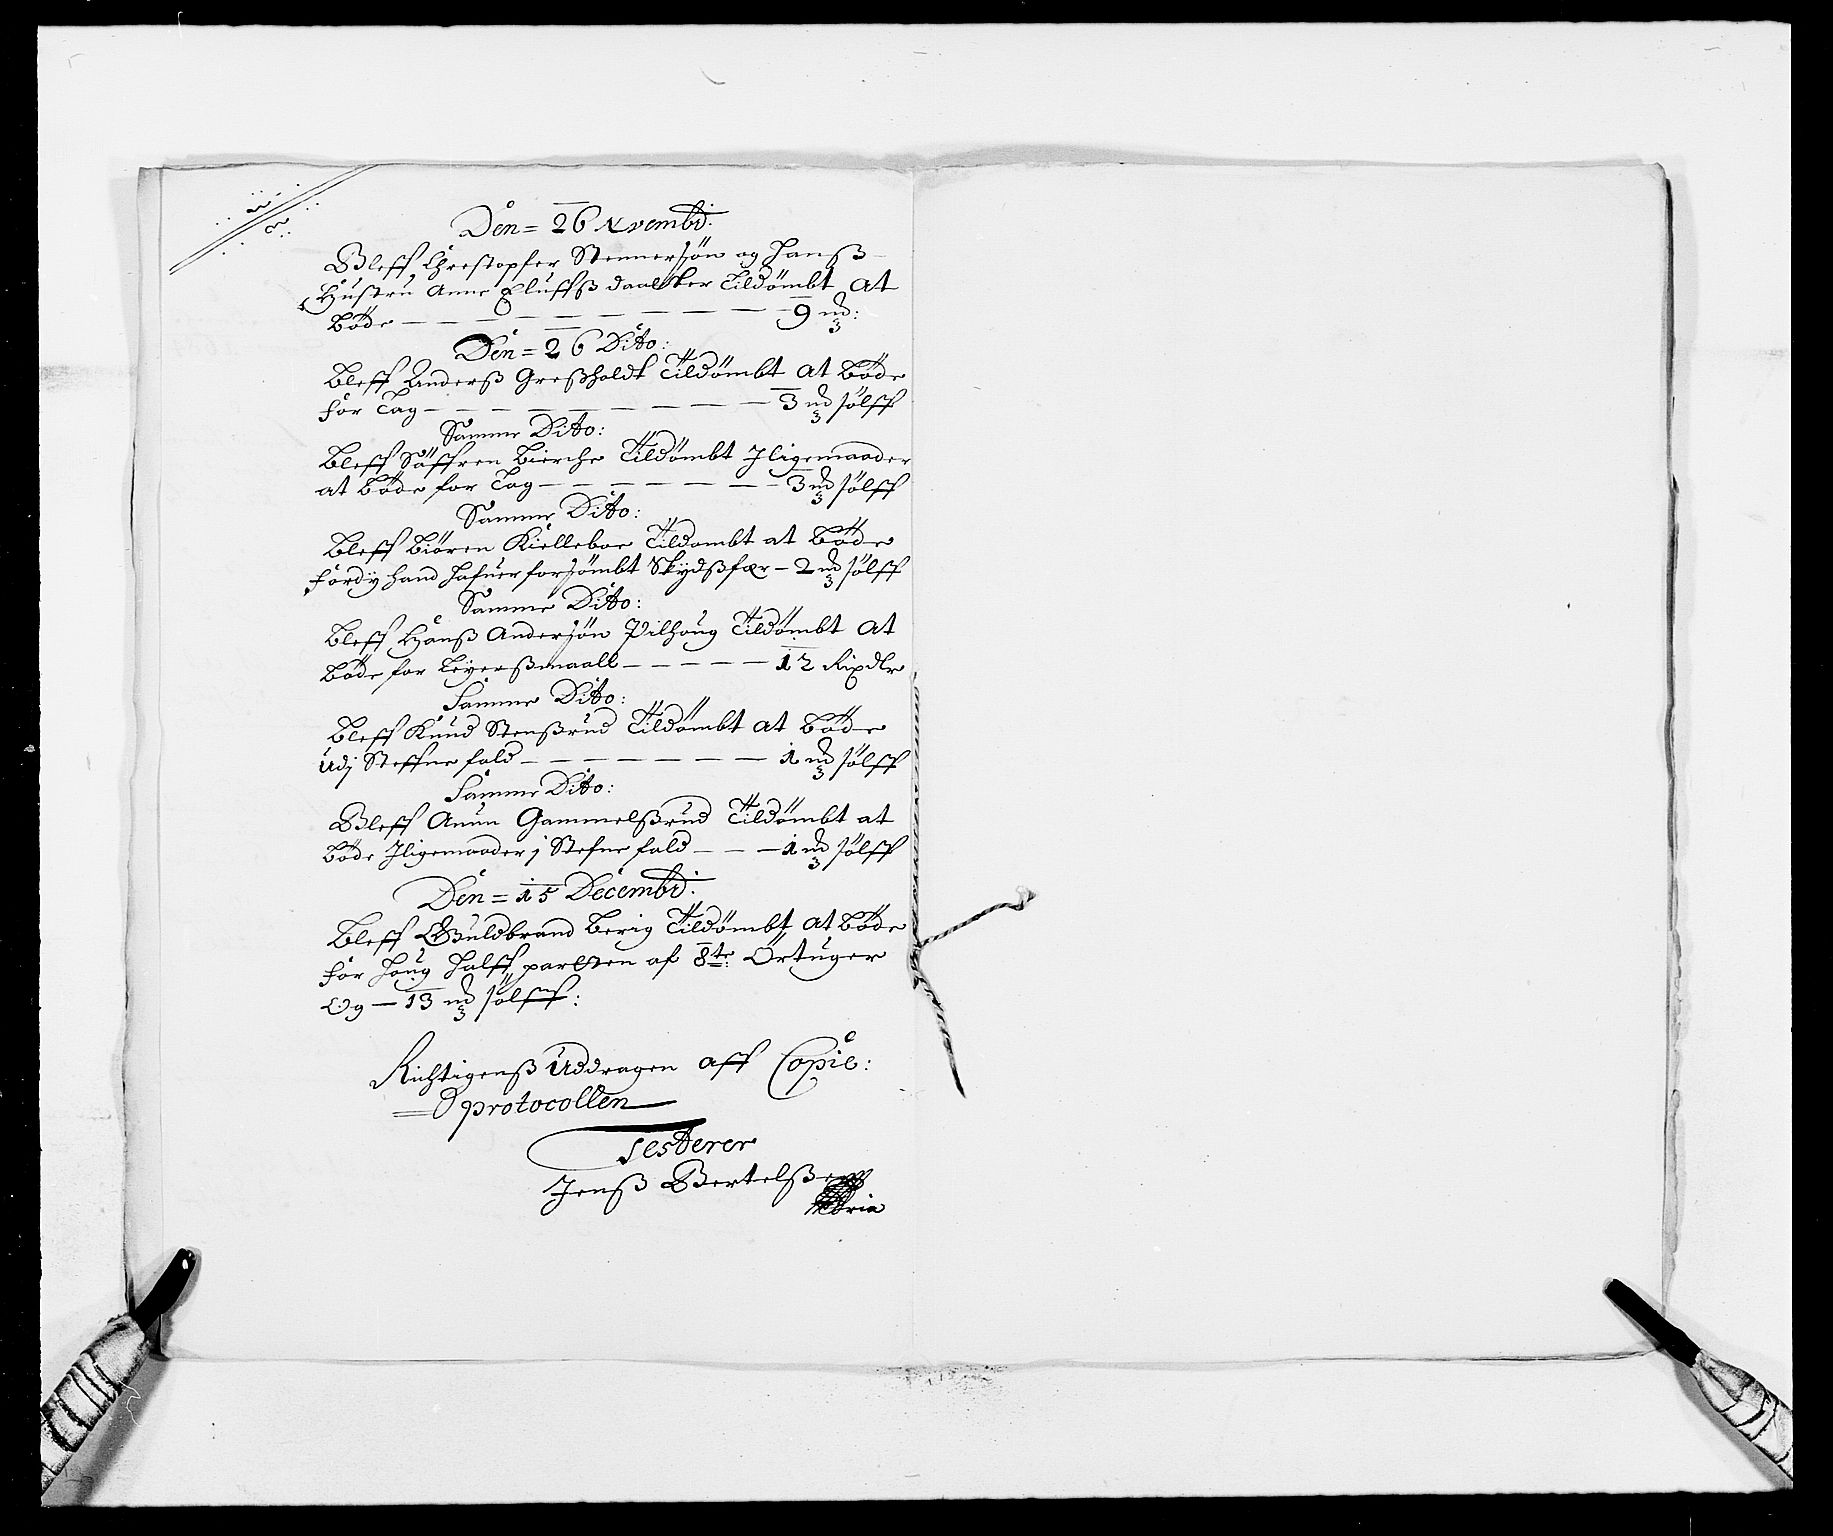 Den = 26 Novembr:
Bleff Chrestopfer Stennersøn og Hanß
Hustru Anne Elluffß daatter Tildömbt at
Böde — — — — — — — — 9 md:
Den = 26 Dito:
Bleff Anderß Greßholdt Tildömbt at Böde
for Tag — — — — — — — 3 md sölff
Samme Dito:
Bleff Söffren Bierche Tildömbt Jligemaader
at Böde for Tag — — — — — — 3 md sölff
Samme Dito:
Bleff Biören Kielleboe Tildömbt at Böde
fordj hand hafuer forsömbt Skydßfær — 2 md sölff
Samme Dito:
Bleff Hanß Andersøn Pilhoug Tildömbt at
Böde for Leyerßmaall — — — — — 12 Rixdlr
Samme Dito:
Bleff Knud Stenßrud Tildömbt at Böde
Udj Steffne fald — — — — — — — 1 md sölff
Samme Dito:
Bleff Anun Gammelßrud Tildömbt at
Böde Jligemaader j Stefne fald — — — 1 md sölff
Den = 15 Decembr:
Bleff Guldbrand Berig Tildömbt at Böde
for Houg halff parten af 8te Örtuger
Og — 13 md sölff:
Richtigenß Uddragen aff Copie:
= protocollen
Testerer
Jenß Bertelßen